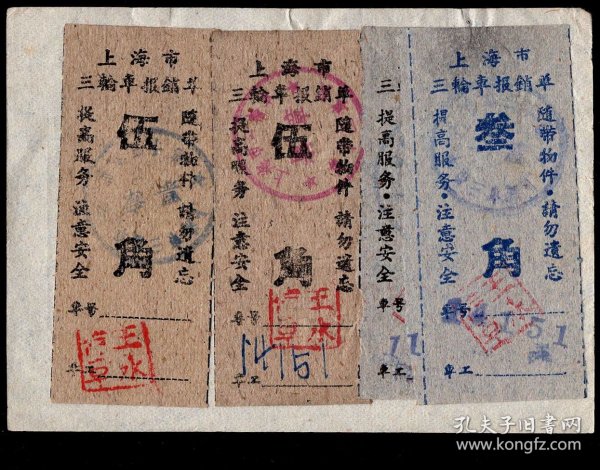 上海市
三輪車报銷单
隨帶物件·請勿遺忘
伍角
提高服务·注意安全
車号
車工
王水
上海市
三輪車报銷单
隨帶物件·請勿遺忘
伍角
提高服务·注意安全
車号
14151
車工
王水
三
提高服务·注意安全
車号
11
車工
上海市
三輪車报銷单
隨帶物件·請勿遺忘
叁角
提高服务·注意安全
車号
151
車工
孔夫子旧书网
www.kongfz.com